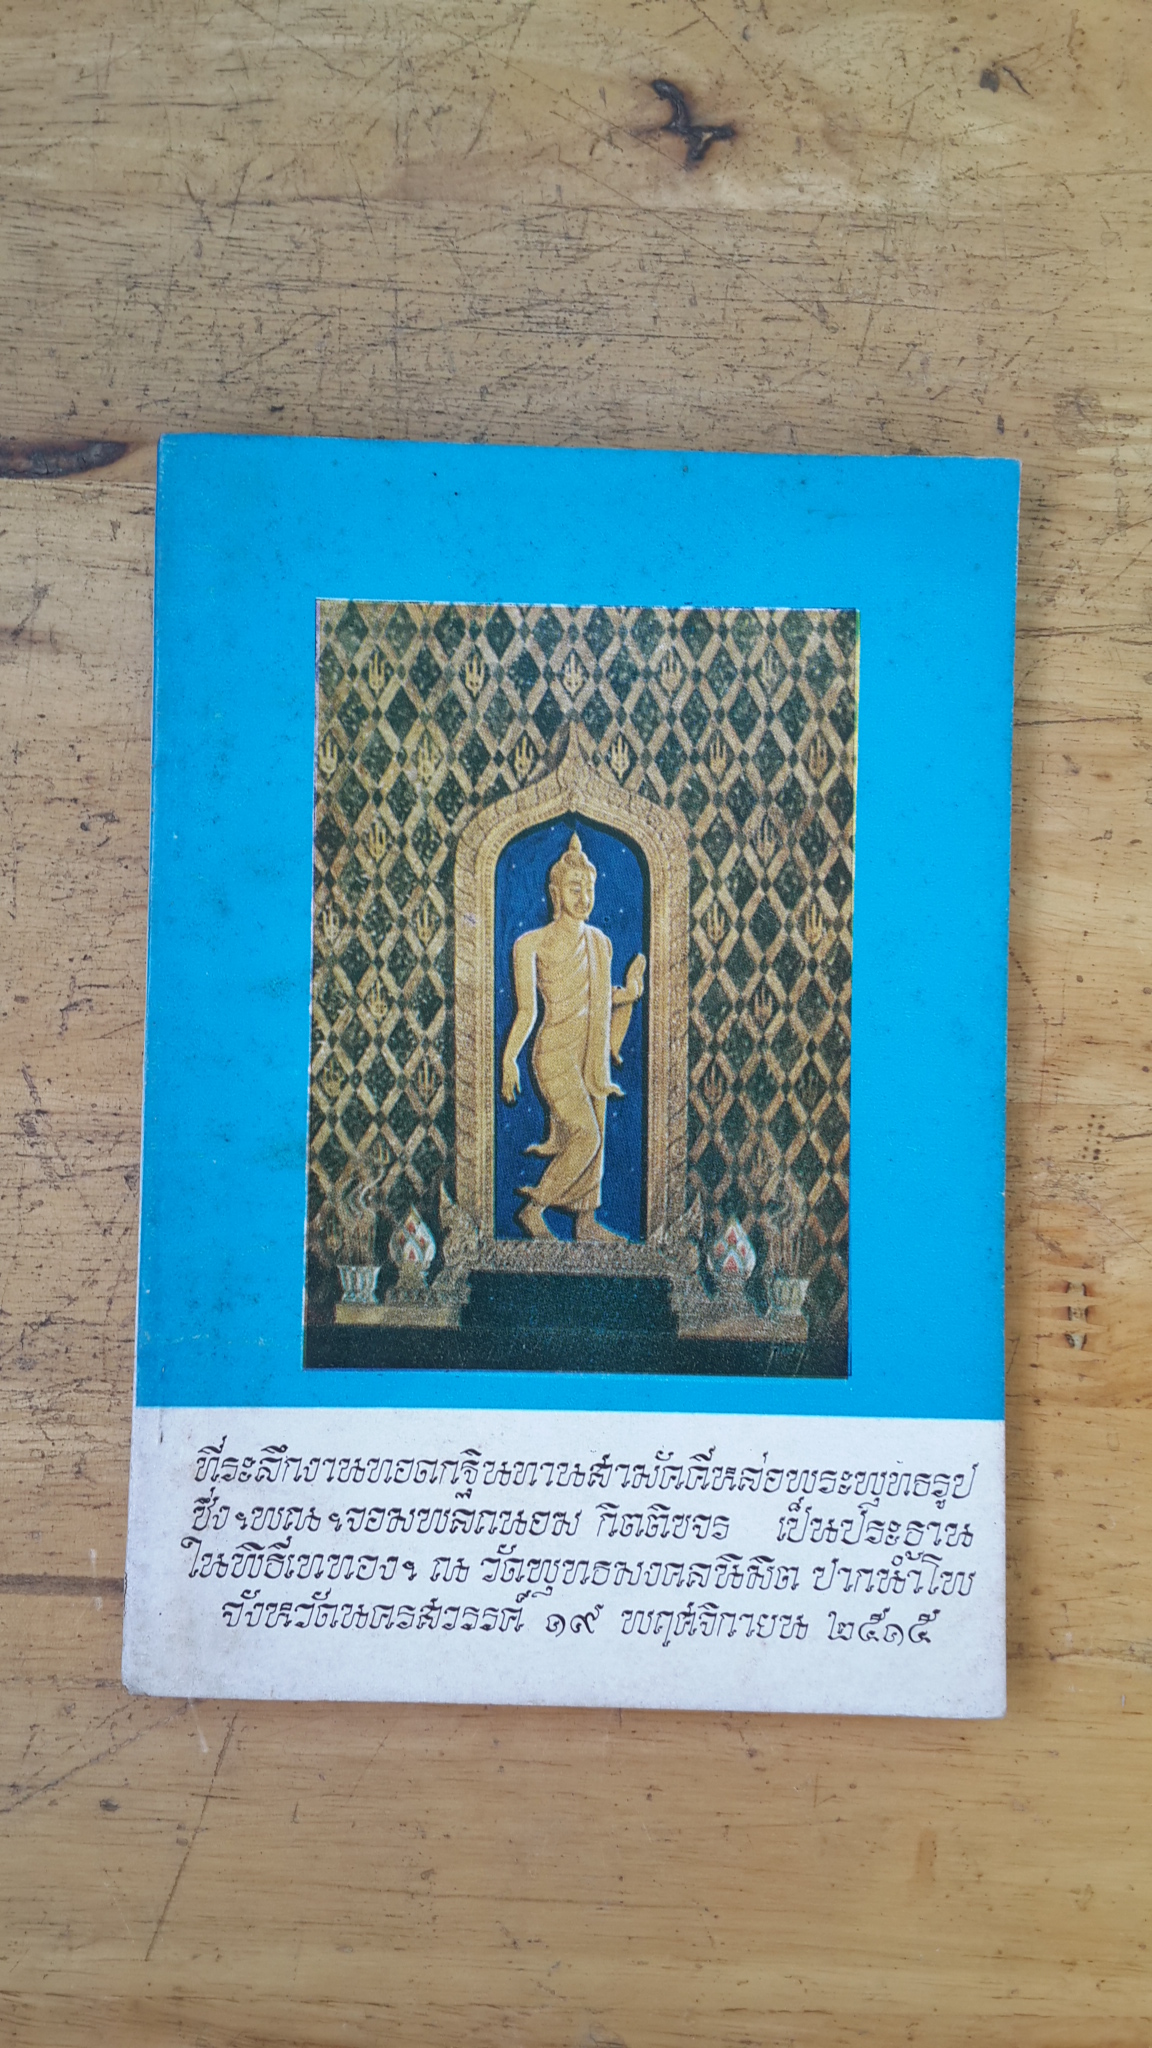 ที่ระลึกงานทอดกฐินทานสามัคคีหล่อพระพุทธรูป
ซึ่ง ฯพณฯ จอมพลถนอม กิตติขจร เป็นประธาน
ในพิธีเททอง ฯ ณ วัดพุทธมงคลนิมิต ปากน้ำโพ
จังหวัดนครสวรรค์ ๑๙ พฤศจิกายน ๒๕๑๕